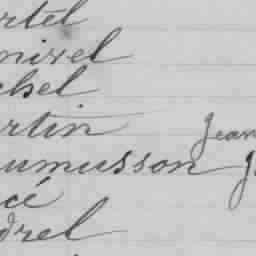 rtel
nirel
chel
rtin Jean
umusson J
cé
drel